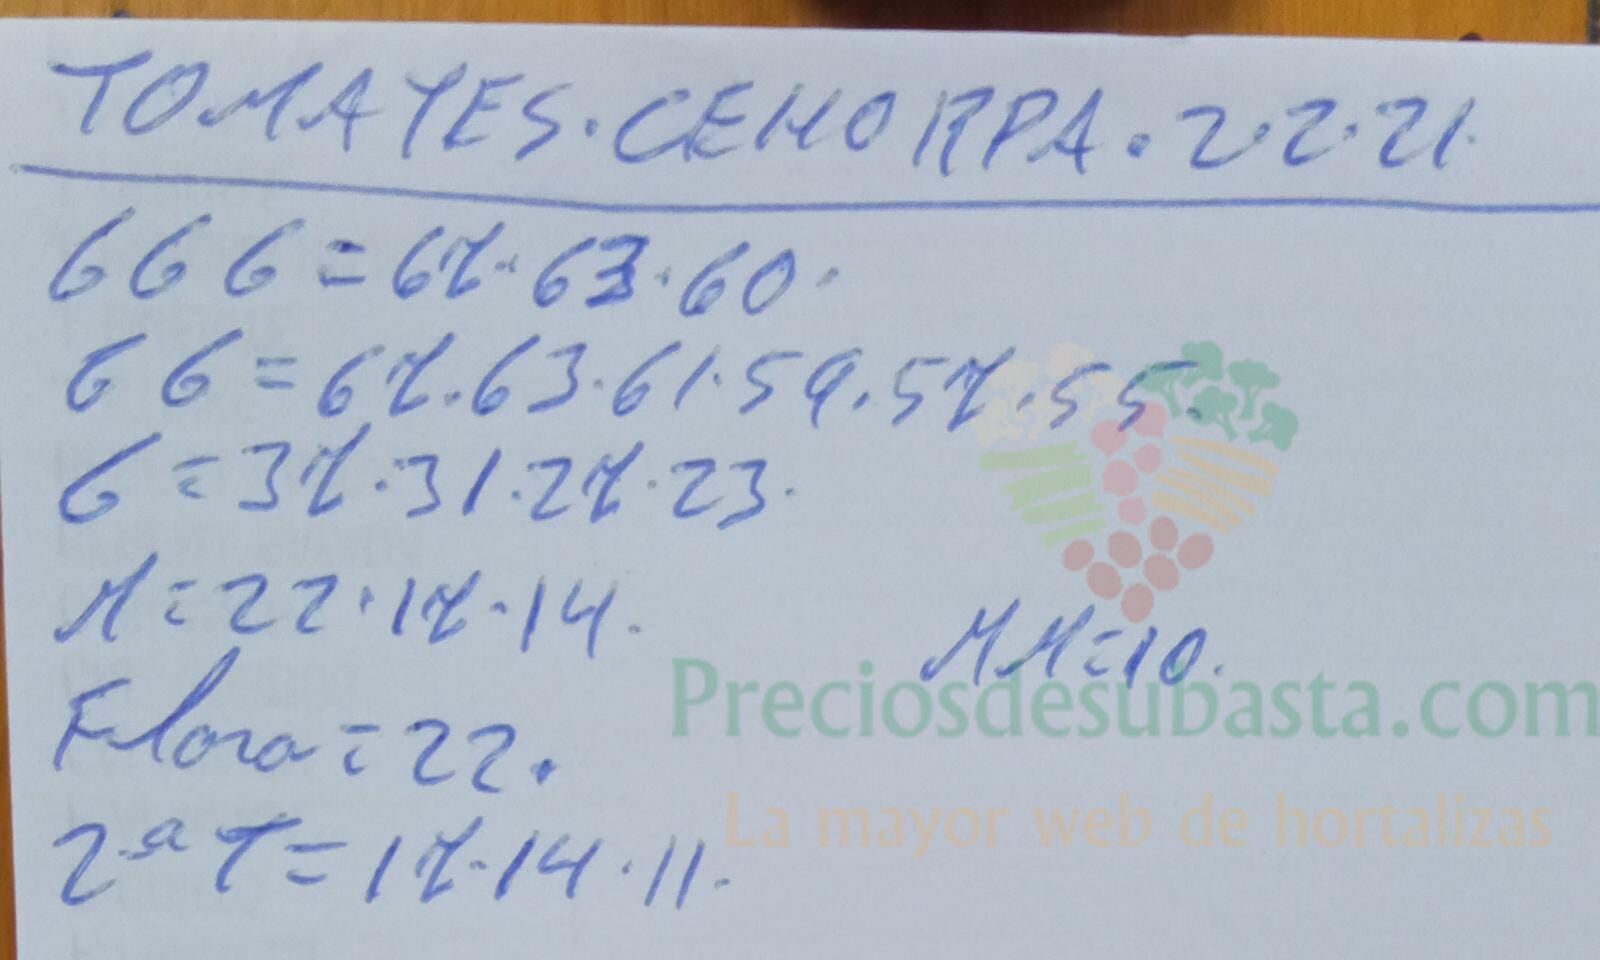 TOMATES.CEHORPA.2.2.21.
GGG=67.63.60.
GG=67.63.61.59.57.55.
G=37.31.27.23.
M=22.17.14.
MM=10.
Flora=22.
2ª T=17.14.11.
Preciosdesubasta.com
La mayor web de hortalizas